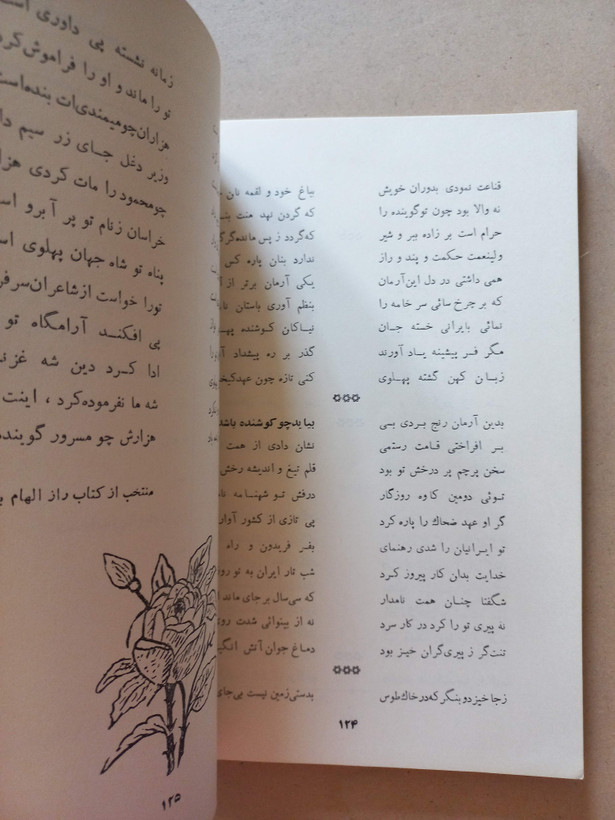 قناعت نمودی بدوران خویش بباغ خود و لقمه نان
نه والا بود چون توگوینده را که گردن نهد منت
حرام است بر زاده ببر و شیر که‌گردد ز پس مانده‌گرگ
ولینعمت حکمت و پند و راز ندارد بنان پاره کس
همی داشتی در دل این‌آرمان یکی آرمان برتر از
که بر چرخ سائی سر خامه را بنظم آوری باستان
نمائی بایرانی خسته جان نیاکان کوشنده
مگر فر پیشینه یاد آورند گذر بر ره پیشداد
زبان کهن گشته پهلوی کنی تازه چون عهد
بدین آرمان رنج بردی بسی بباید چو کوشنده باشد
بر افراختی قامت رستمی نشان دادی از همت
سخن پرچم پر درخش تو بود قلم تیغ و اندیشه رخش
توئی دومین کاوه روزگار درفش تو شهنامه
گر او عهد ضحاک را پاره کرد پی تازی از کشور
تو ایرانیان را شدی رهنمای بفر فریدون و راه
خدایت بدان کار پیروز کرد شب تار ایران به تو
شگفتا چنان همت نامدار که سی‌سال بر جای ماند
نه پیری تو را کرد در کار سرد نه از بینوائی شدت
تنت‌گر ز پیری‌گران خیز بود دماغ جوان آتش
زجا خیز دو بنگر که در خاک طوس بدستی زمین نیست بی‌جای
۱۲۴
زمانه نشسته پی داوری
تو را ماند و او را فراموش
هزاران‌چومیمندی‌ات بنده
وزیر دغل جای زر سیم
چومحمود را مات کردی
خراسان زنام تو پر آبرو
پناه تو شاه جهان پهلوی
تورا خواست ازشاعران
پی افکند آرامگاه تو
ادا کرد دین شه
شه ما نفرموده‌کرد ، اینت
هزارش چو مسرور
منتخب از کتاب راز الهام
۱۲۵